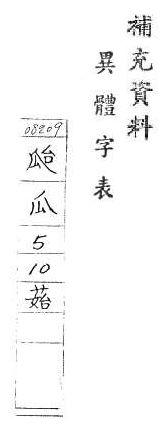 補充資料
異體字表
08209
瓝
瓜
5
10
菇